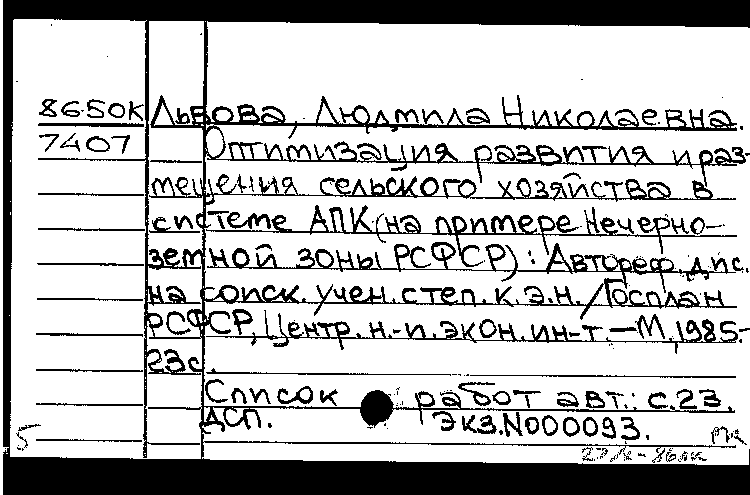 8650К Львова, Людмила Николаевна.
7407 Оптимизация развития и раз-
мещения сельского хозяйства в
системе АПК (на примере Нечерно-
земной зоны РСФСР) : Автореф. дис.
на соиск. учен. степ. к.э.н. / Госплан
РСФСР, Центр. н.-и. экон. ин-т. — М., 1985.-
23с.
Список работ авт.: с.23.
ДСП. Экз.N000093.
5